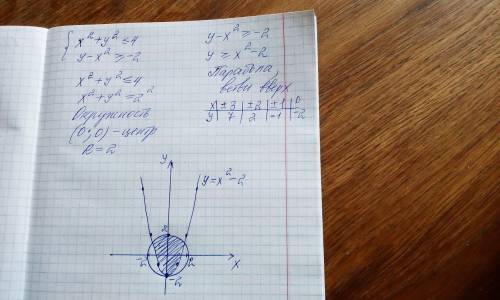 { x²+y² ≤ 4
y-x² ≥ -2
x²+y² ≤ 4
x²+y² = 2²
Окружность
(0;0) - центр
R = 2
y-x² ≥ -2
y ≥ x²-2
Парабола,
ветви вверх
x | ±3 | ±2 | ±1 | 0
y | 7 | 2 | -1 | -2
y
y=x²-2
2
-2 2 x
-2